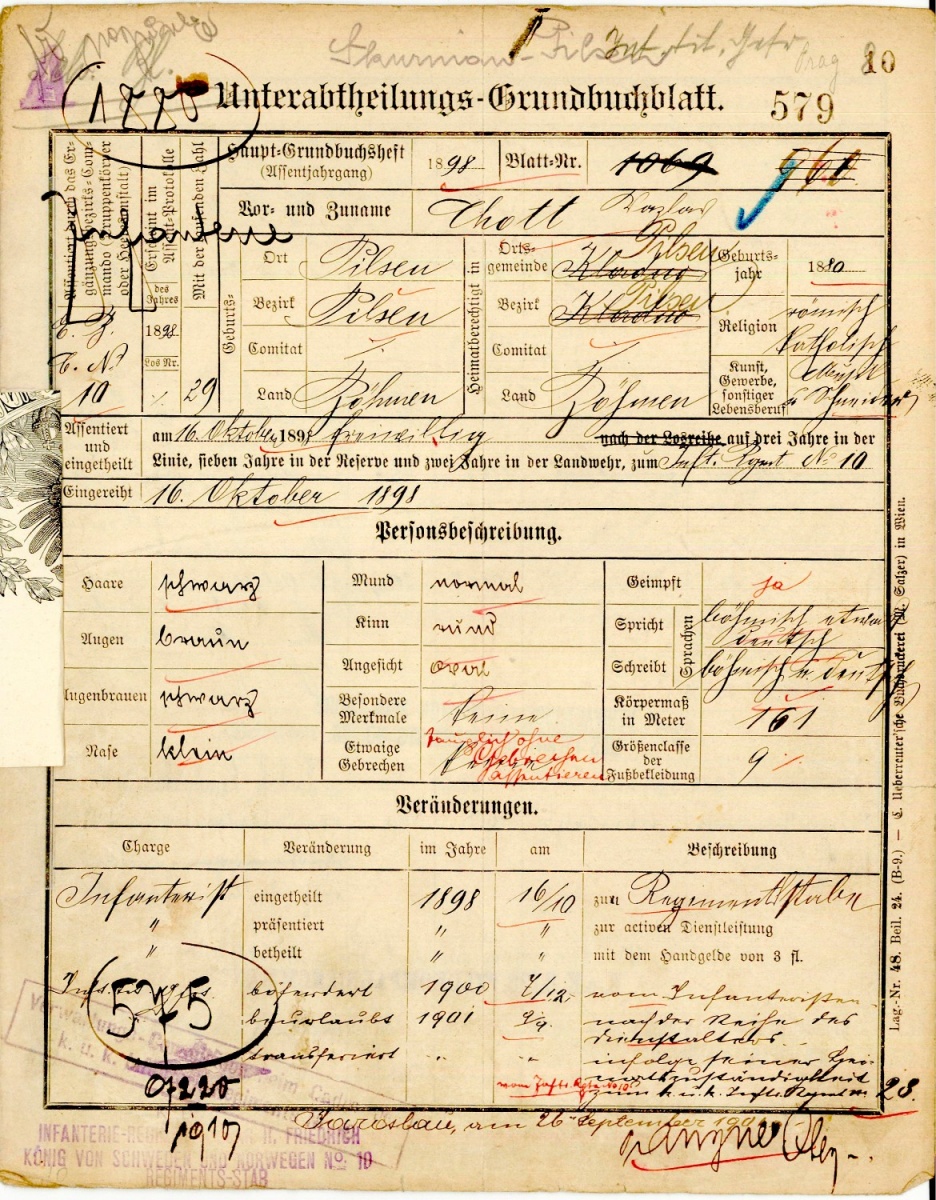 10
Unterabtheilungs-Grundbuchblatt.
579
1880
Haupt-Grundbuchsheft
(Assentjahrgang)
1898
Blatt-Nr.
1069
960
Vor- und Zuname
Chott Wazlav
Assentiert durch das Ergänzungsbezirks-Commando (Truppenkörper oder Heeresanstalt)
Erscheint im Assent-Protokolle
des Jahres
1898
Los Nr.
Mit der laufenden Zahl
29
Infanterie
10
Geburts-
Ort
Pilsen
Bezirk
Pilsen
Comitat
Land
Böhmen
Heimatberechtigt in
Ortsgemeinde
Pilsen
Bezirk
Pilsen
Comitat
Land
Böhmen
Geburtsjahr
1880
Religion
römisch
katholisch
Kunst, Gewerbe, sonstiger Lebensberuf
Schneider
Assentiert und eingetheilt
am 16. Oktober 1898 freiwillig nach der Losreihe auf drei Jahre in der
Linie, sieben Jahre in der Reserve und zwei Jahre in der Landwehr, zum Inft. Rgmt No 10
Eingereiht 16. Oktober 1898
Personsbeschreibung.
Haare schwarz
Mund normal
Geimpft ja
Augen braun
Kinn rund
Sprachen
Spricht böhmisch etwas
deutsch
Angesicht oval
Schreibt böhmisch u. deutsch
Augenbrauen schwarz
Besondere Merkmale keine
Körpermaß in Meter 161
Nase klein
Etwaige Gebrechen
tauglich ohne
Gebrechen
assentieren
Größenclasse der Fußbekleidung 9
Veränderungen.
Charge Veränderung im Jahre am Beschreibung
Infanterist eingetheilt 1898 16/10 zum Regimentsstabe
" präsentiert " " zur activen Dienstleistung
" betheilt " " mit dem Handgelde von 3 fl.
befördert 1900 7/12 vom Infanteristen
575
beurlaubt 1901 9/9 nach der Reihe des
Dienstalters
transferiert " " infolge seiner Hei-
matszuständigkeit
vom Inft. Rgte No 10 zum k. u. k. Inft. Rgmt Nr. 28.
07220
Jaroslau, am 26 September 190
INFANTERIE-REG II. FRIEDRICH
KÖNIG VON SCHWEDEN UND NORWEGEN No. 10
REGIMENTS-STAB
Lag.-Nr. 48. Beil. 24. (B-9.) — C. Ueberreuter'sche Buchdruckerei (M. Salzer) in Wien.